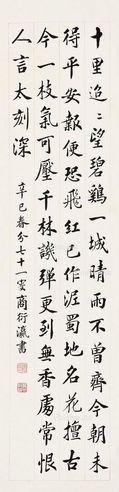 十里迢迢望碧雞一城晴雨不曾齊今朝未
得平安報便恐飛紅已作泥蜀地名花擅古
今一枝氣可壓千林譏彈更到無香處常恨
人言太刻深
辛巳春分七十一叟商衍瀛書